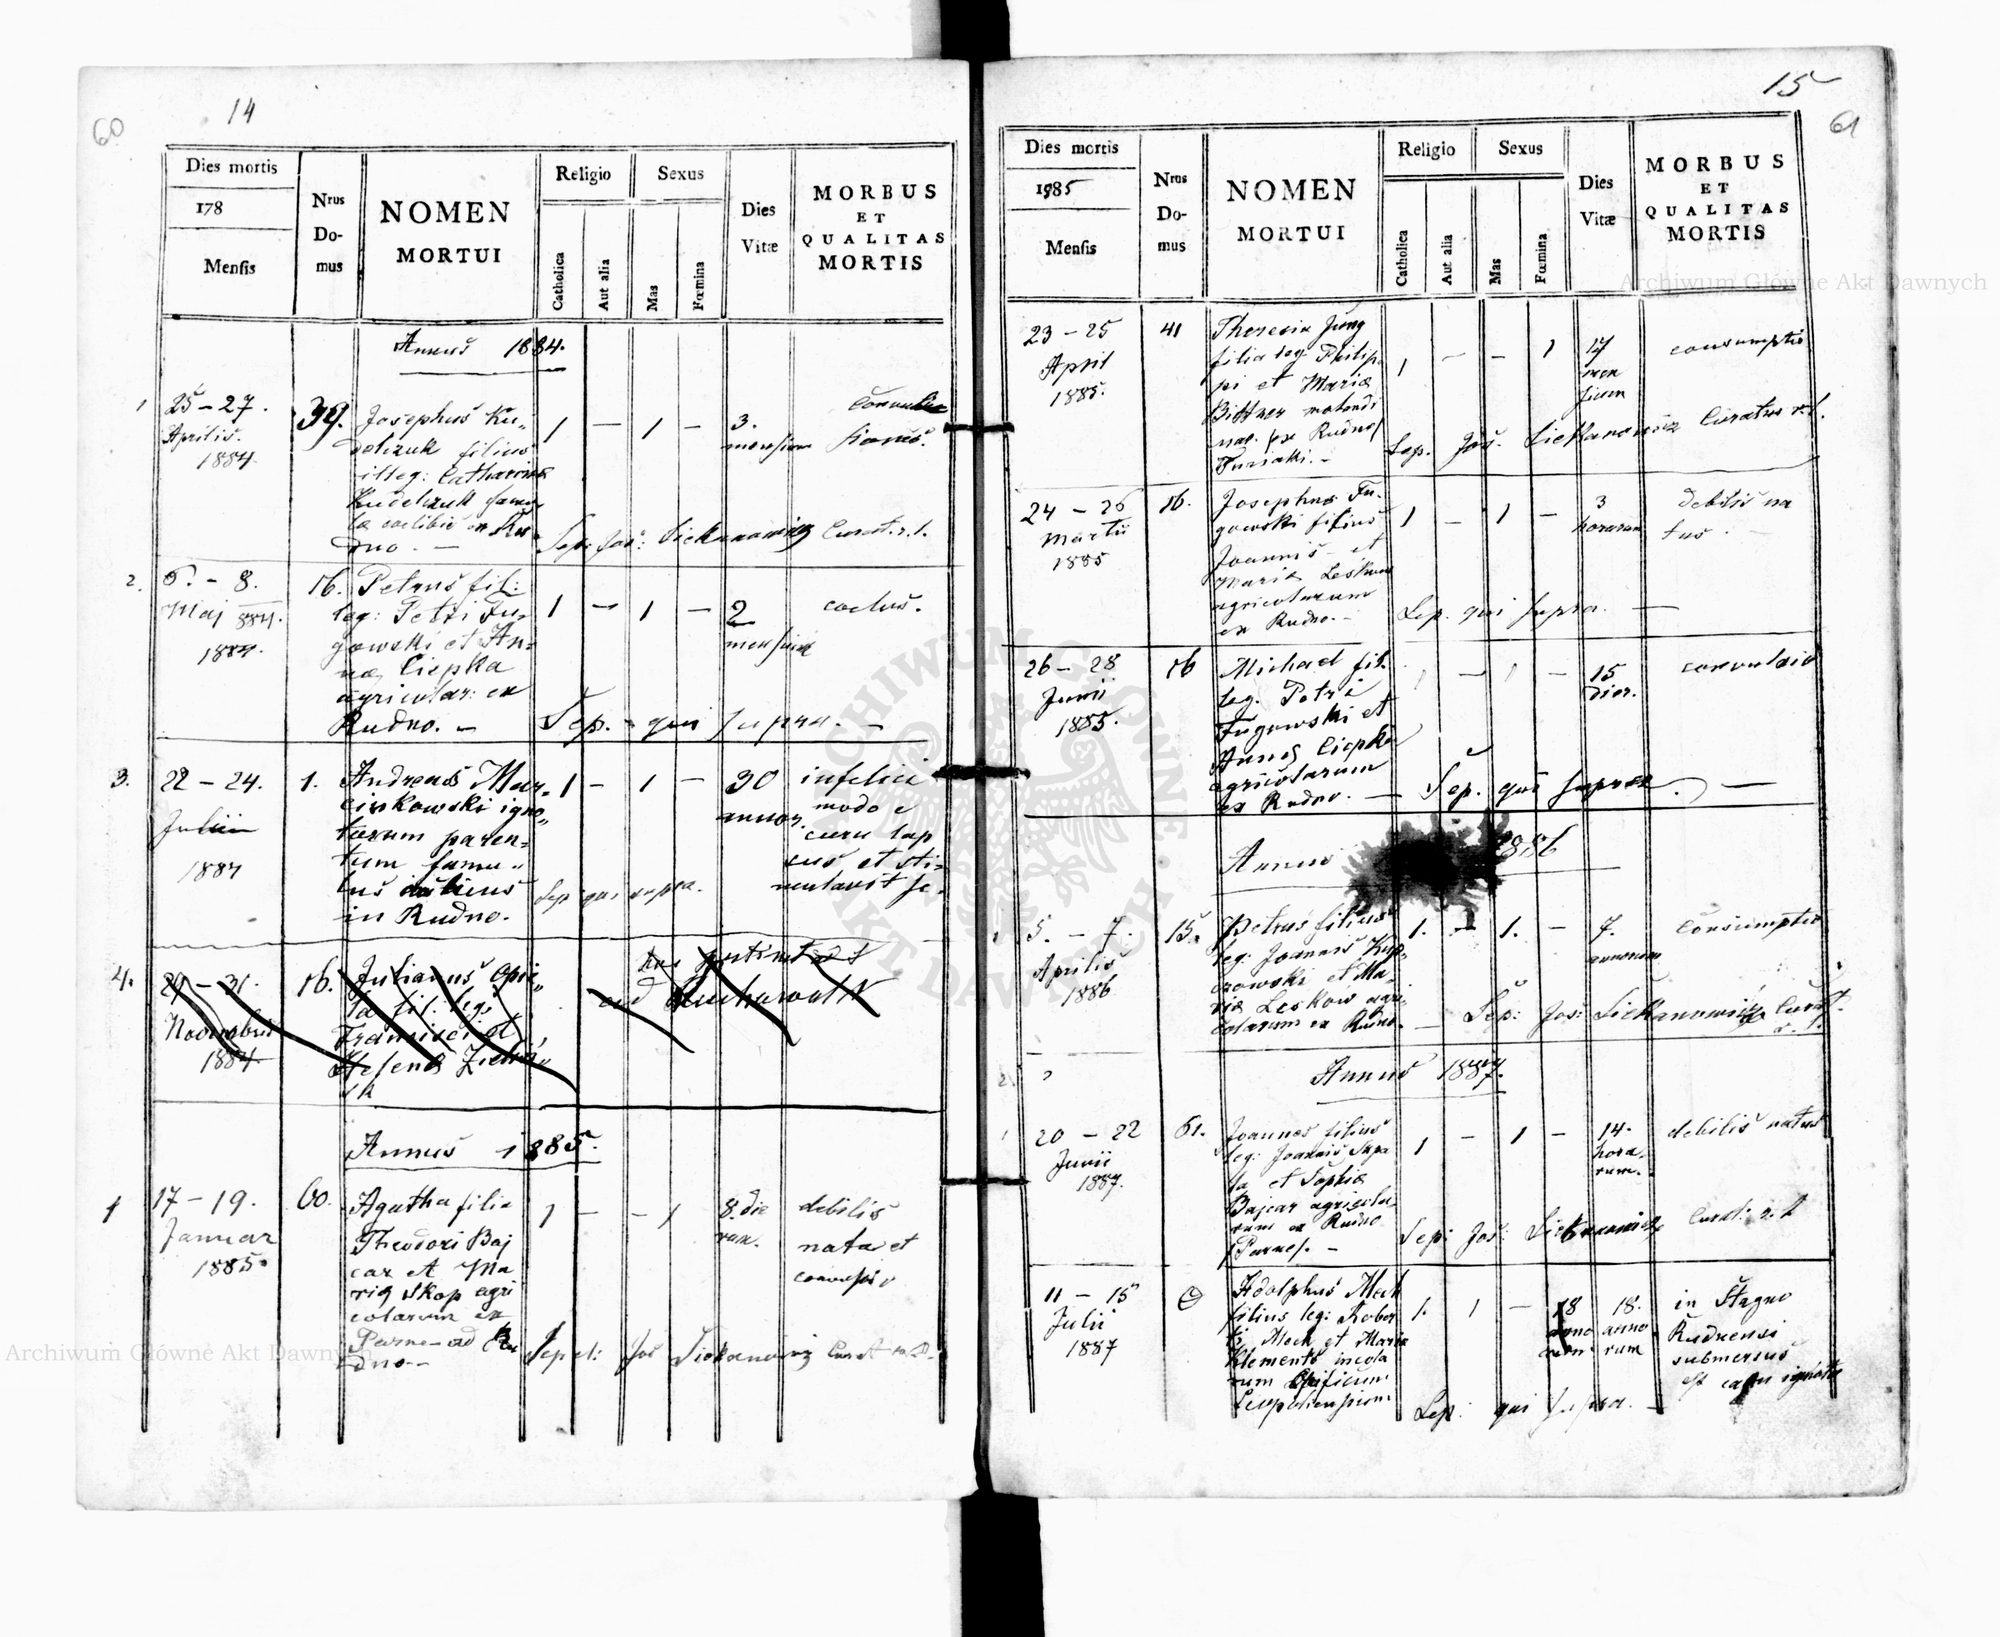 14
60
Dies mortis
178
Mensis
Nrus
Do-
mus
NOMEN
MORTUI
Religio
Catholica
Aut alia
Sexus
Mas
Fœmina
Dies
Vitæ
MORBUS
ET
QUALITAS
MORTIS
Annus 1884.
1
25 – 27.
Aprilis.
1884.
39.
Josephus Ku„
delczuk filius
illeg: Catharina
Kudelczuk famu
la coelibis ex Ru
dno. —
1 — 1 –
3.
mensium
Sep: Jos: Siekanowicz Curat. r. l.
2.
6. – 8.
Maj 884.
1884.
16.
Petrus fil:
leg: Petri Fu-
gowski et An-
na Ciepka
agricolar: ex
Rudno. –
1 – 1 –
2
mensium
Sep. – qui supra. –
3.
22 – 24.
Julii
1884
1.
Andreas Mar-
cinkowski igno„
torum paren-
tum famu„
lus
in Rudno.
1 – 1 –
30
annor.
infelici
modo e
curru lap
sus et
Sep qui supra.
4.
29 – 31.
Novembris
1884
16.
Julianus Opie„
la fil: leg:
Francisci et
Helena
ad
Annus 1885.
1
17 – 19.
Januar
1885.
60.
Agatha filia
Theodori Baj
car et Ma
ria Skop agri
colarum ex
Parna ad Ru
dno –
1 – – 1
8. die
rum.
debilis
nata et
Sepel: Jos Siekanowicz Curat r. l.
15
61
Dies mortis
1885
Mensis
Nrus
Do-
mus
NOMEN
MORTUI
Religio
Catholica
Aut alia
Sexus
Mas
Fœmina
Dies
Vitæ
MORBUS
ET
QUALITAS
MORTIS
23 – 25
April
1885.
41
Theresia Jung
filia leg. Philip
pi et Maria
Bittner
nar. ex Rudno
1 – – 1
17
men
sium
consumptio
Sep. Jos. Siekanowicz Curatus r. l.
24 – 26
Martii
1885
16.
Josephus Fu-
gowski filius
Joannis et
Maria Leskow
agricolarum
ex Rudno. –
1 – 1 –
3
horarum
debilis na
tus.
Sep. qui supra. —
26 – 28
Junii
1885.
16
Michael fil.
leg. Petri
Fugowski et
Anna Ciepka
agricolarum
ex Rudno. —
1 – 1 –
15
dier.
convulsio
Sep. qui supra. —
Annus 1886
5. – 7.
Aprilis
1886
15.
Petrus filius
leg. Joannis
czowski et Ma-
ria Leskow agri
colarum ex Rudno. —
1. – 1. –
7.
annorum
Consumptio
Sep: Jos: Siekanowicz Curat.
r. l.
Annus 1887.
20 – 22
Junii
1887.
61.
Joannes filius
leg: Joannis Skpa
la et Sophia
Bajcar agricola-
rum ex Rudno
Parna. –
1 – 1 –
14.
hora-
rum.
debilis natus
Sep: Jos: Siekanowicz Curat: r. l.
11 – 15
Julii
1887
Adolphus Mech
filius leg: Rober
ti Mech et Maria
Klements incola
rum opificum
Leopoliensium
1. 1 –
18
anno
rum
18.
anno
rum
in Stagno
Rudnensi
submersus
est casu ignoto
Sep: qui supra. –
Archiwum Główne Akt Dawnych
Archiwum Główne Akt Dawnych
ARCHIWUM GŁÓWNE AKT DAWNYCH